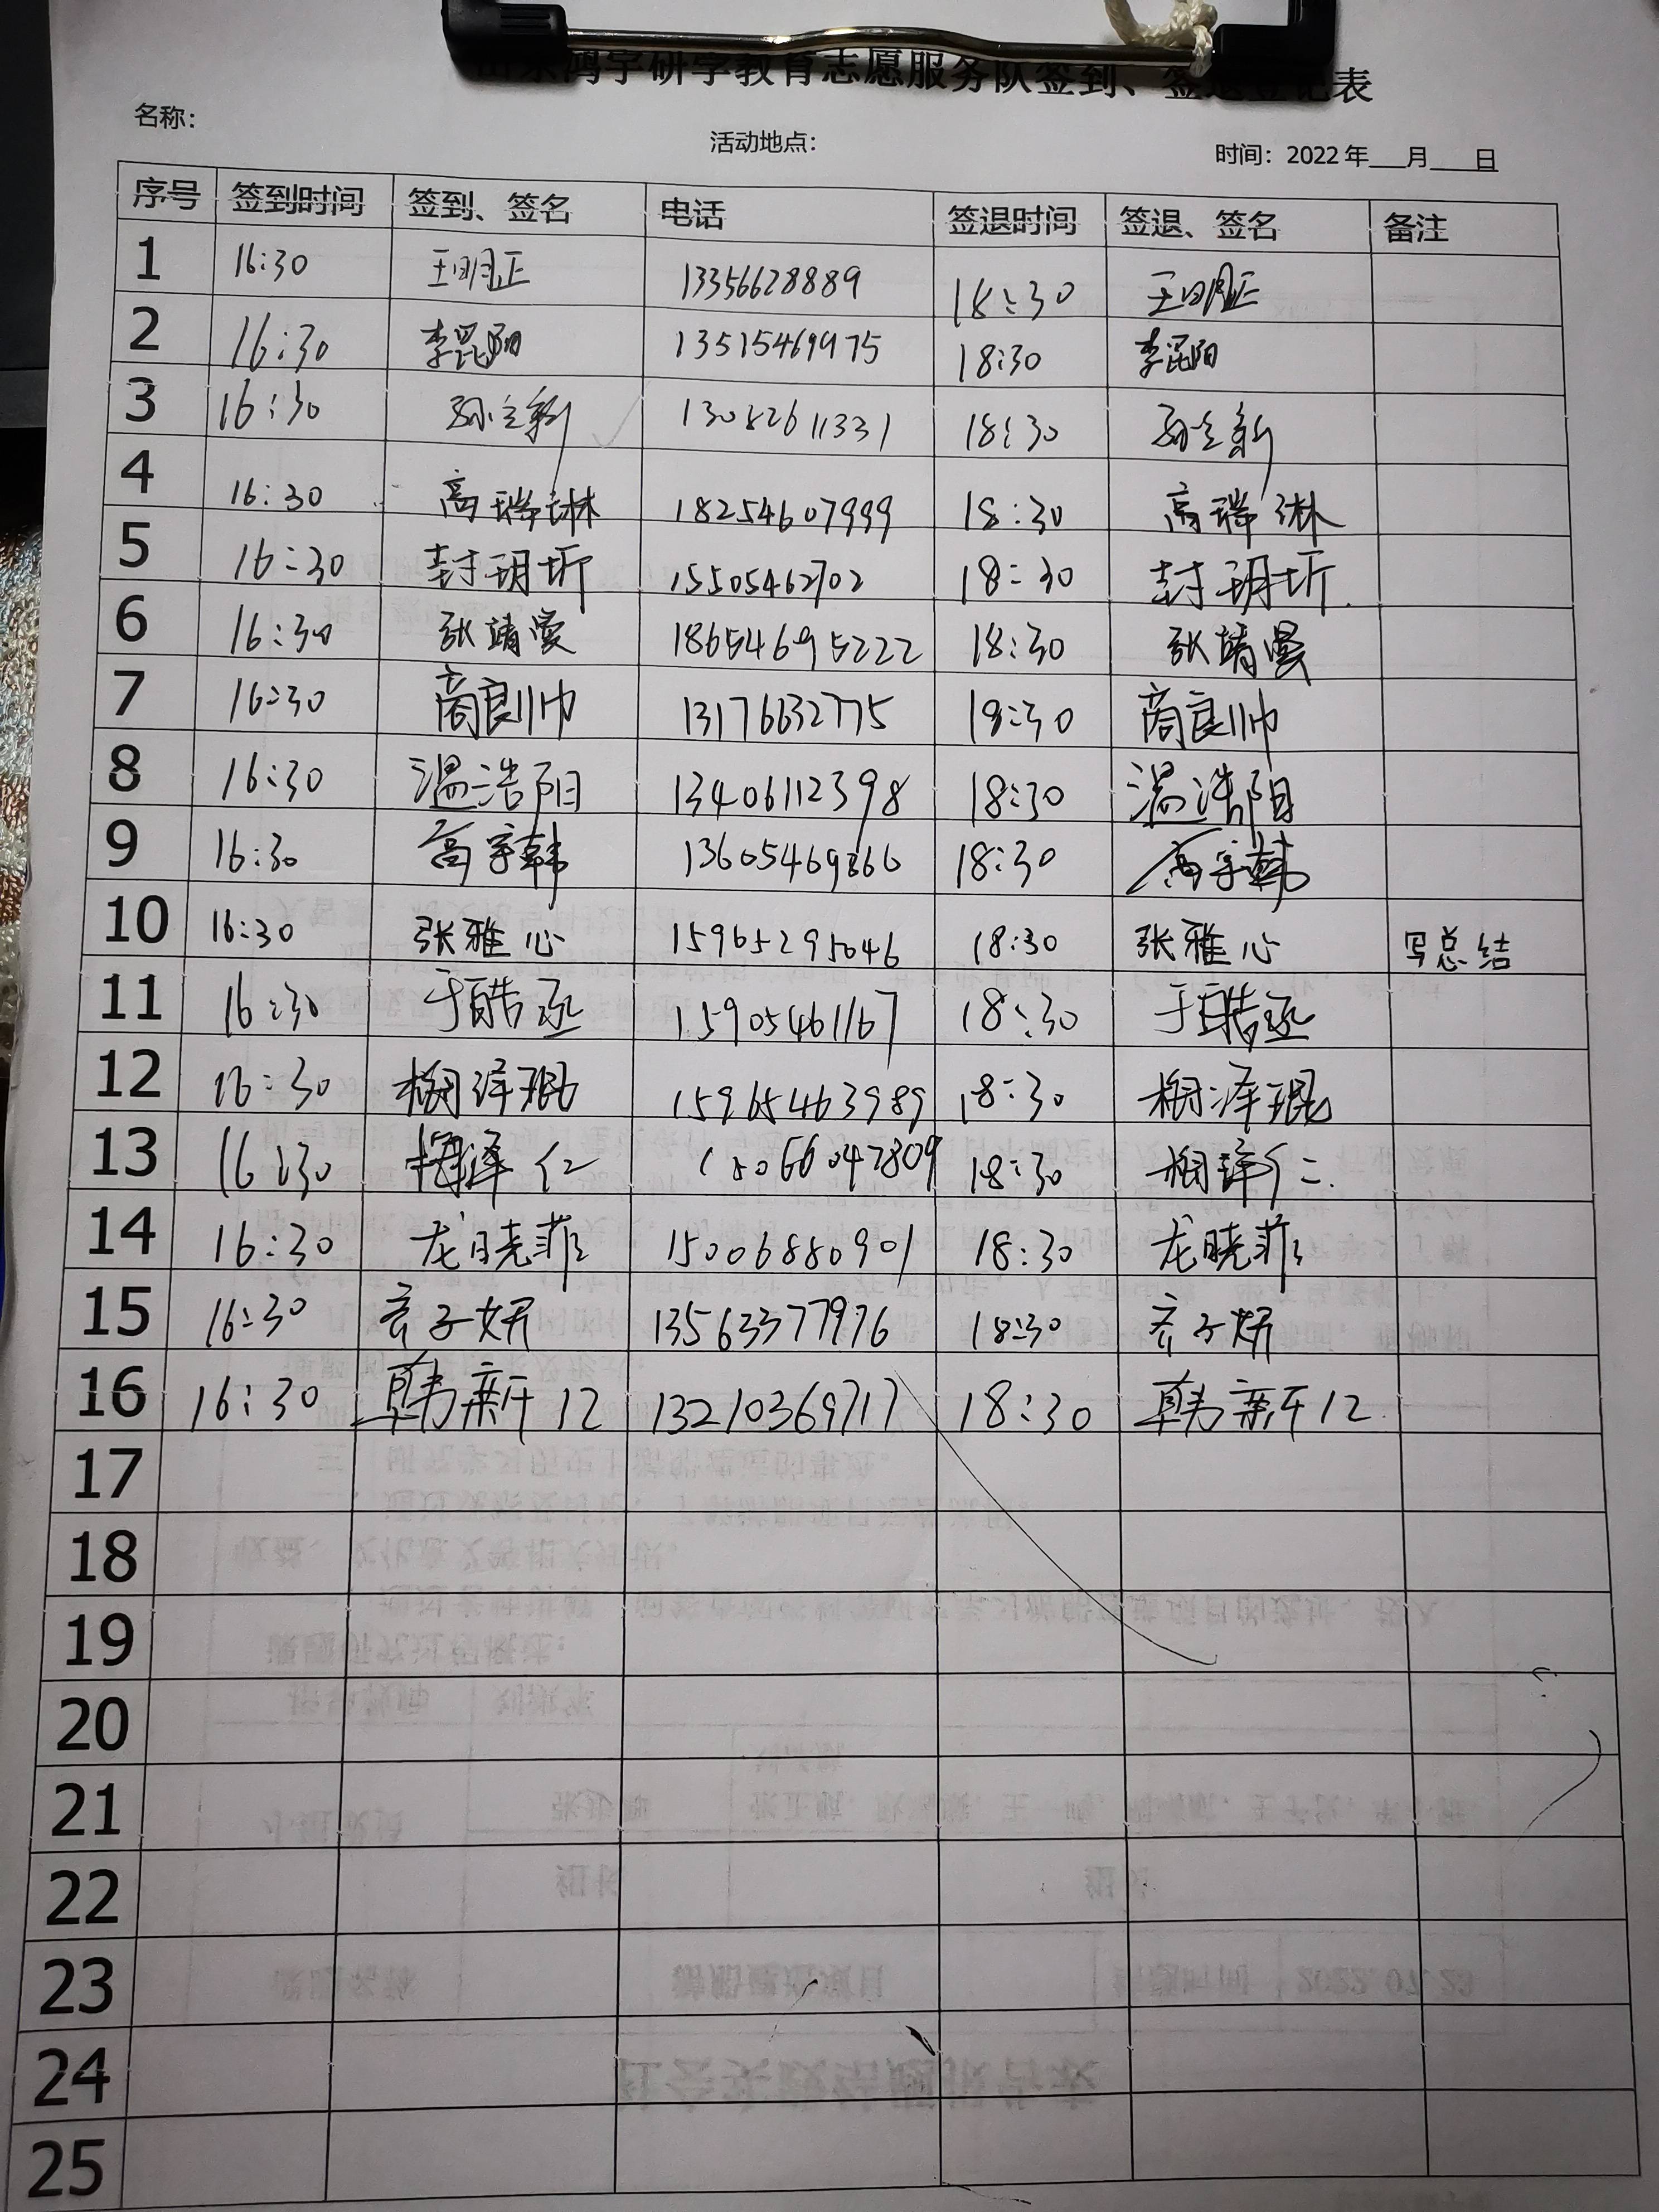 山东鸿宇研学教育志愿服务队签到、签退登记表
名称：
活动地点：
时间：2022年___月___日
序号 签到时间 签到、签名 电话 签退时间 签退、签名 备注
1 16:30 王明正 13356628889 18:30 王明正
2 16:30 李昆阳 13515469975 18:30 李昆阳
3 16:30 孙立新 13082611331 18:30 孙立新
4 16:30 高瑞琳 18254607999 18:30 高瑞琳
5 16:30 封玥圻 15505462702 18:30 封玥圻
6 16:30 张靖曼 18654695222 18:30 张靖曼
7 16:30 商良帅 13176632775 18:30 商良帅
8 16:30 温浩阳 13406112398 18:30 温浩阳
9 16:30 高宇韩 13605469860 18:30 高宇韩
10 16:30 张雅心 15965295046 18:30 张雅心 写总结
11 16:30 于皓丞 15905461167 18:30 于皓丞
12 16:30 泽琨 15965463989 18:30 泽琨
13 16:30 泽仁 15066047809 18:30 泽仁
14 16:30 龙晓菲 15006880901 18:30 龙晓菲
15 16:30 子妍 13563377976 18:30 子妍
16 16:30 韩新仁 13210369717 18:30 韩新仁
17
18
19
20
21
22
23
24
25